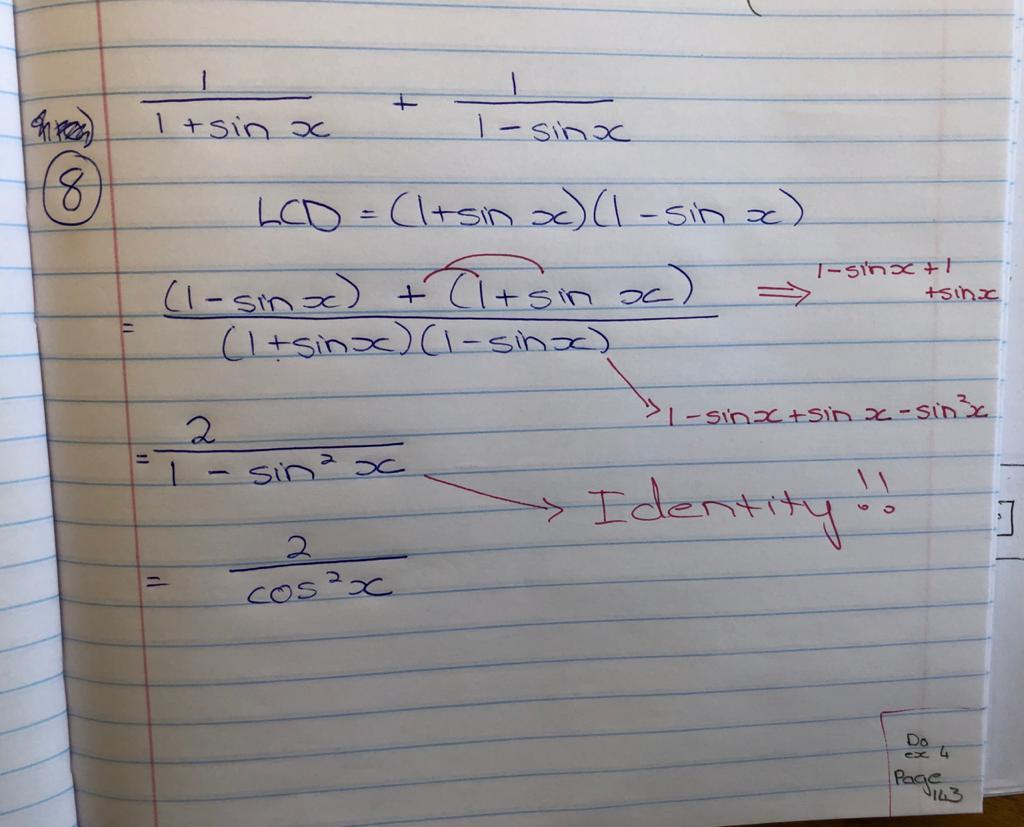 1 + 1
1 + sin x 1 - sin x
8
LCD = (1+sin x)(1 - sin x)
(1 - sin x) + (1 + sin x) ⇒ 1 - sin x + 1
+ sin x
= (1 + sin x)(1 - sin x)
→ 1 - sin x + sin x - sin²x
2
= 1 - sin² x
→ Identity !!
2
= cos² x
Do
ex 4
Page
143